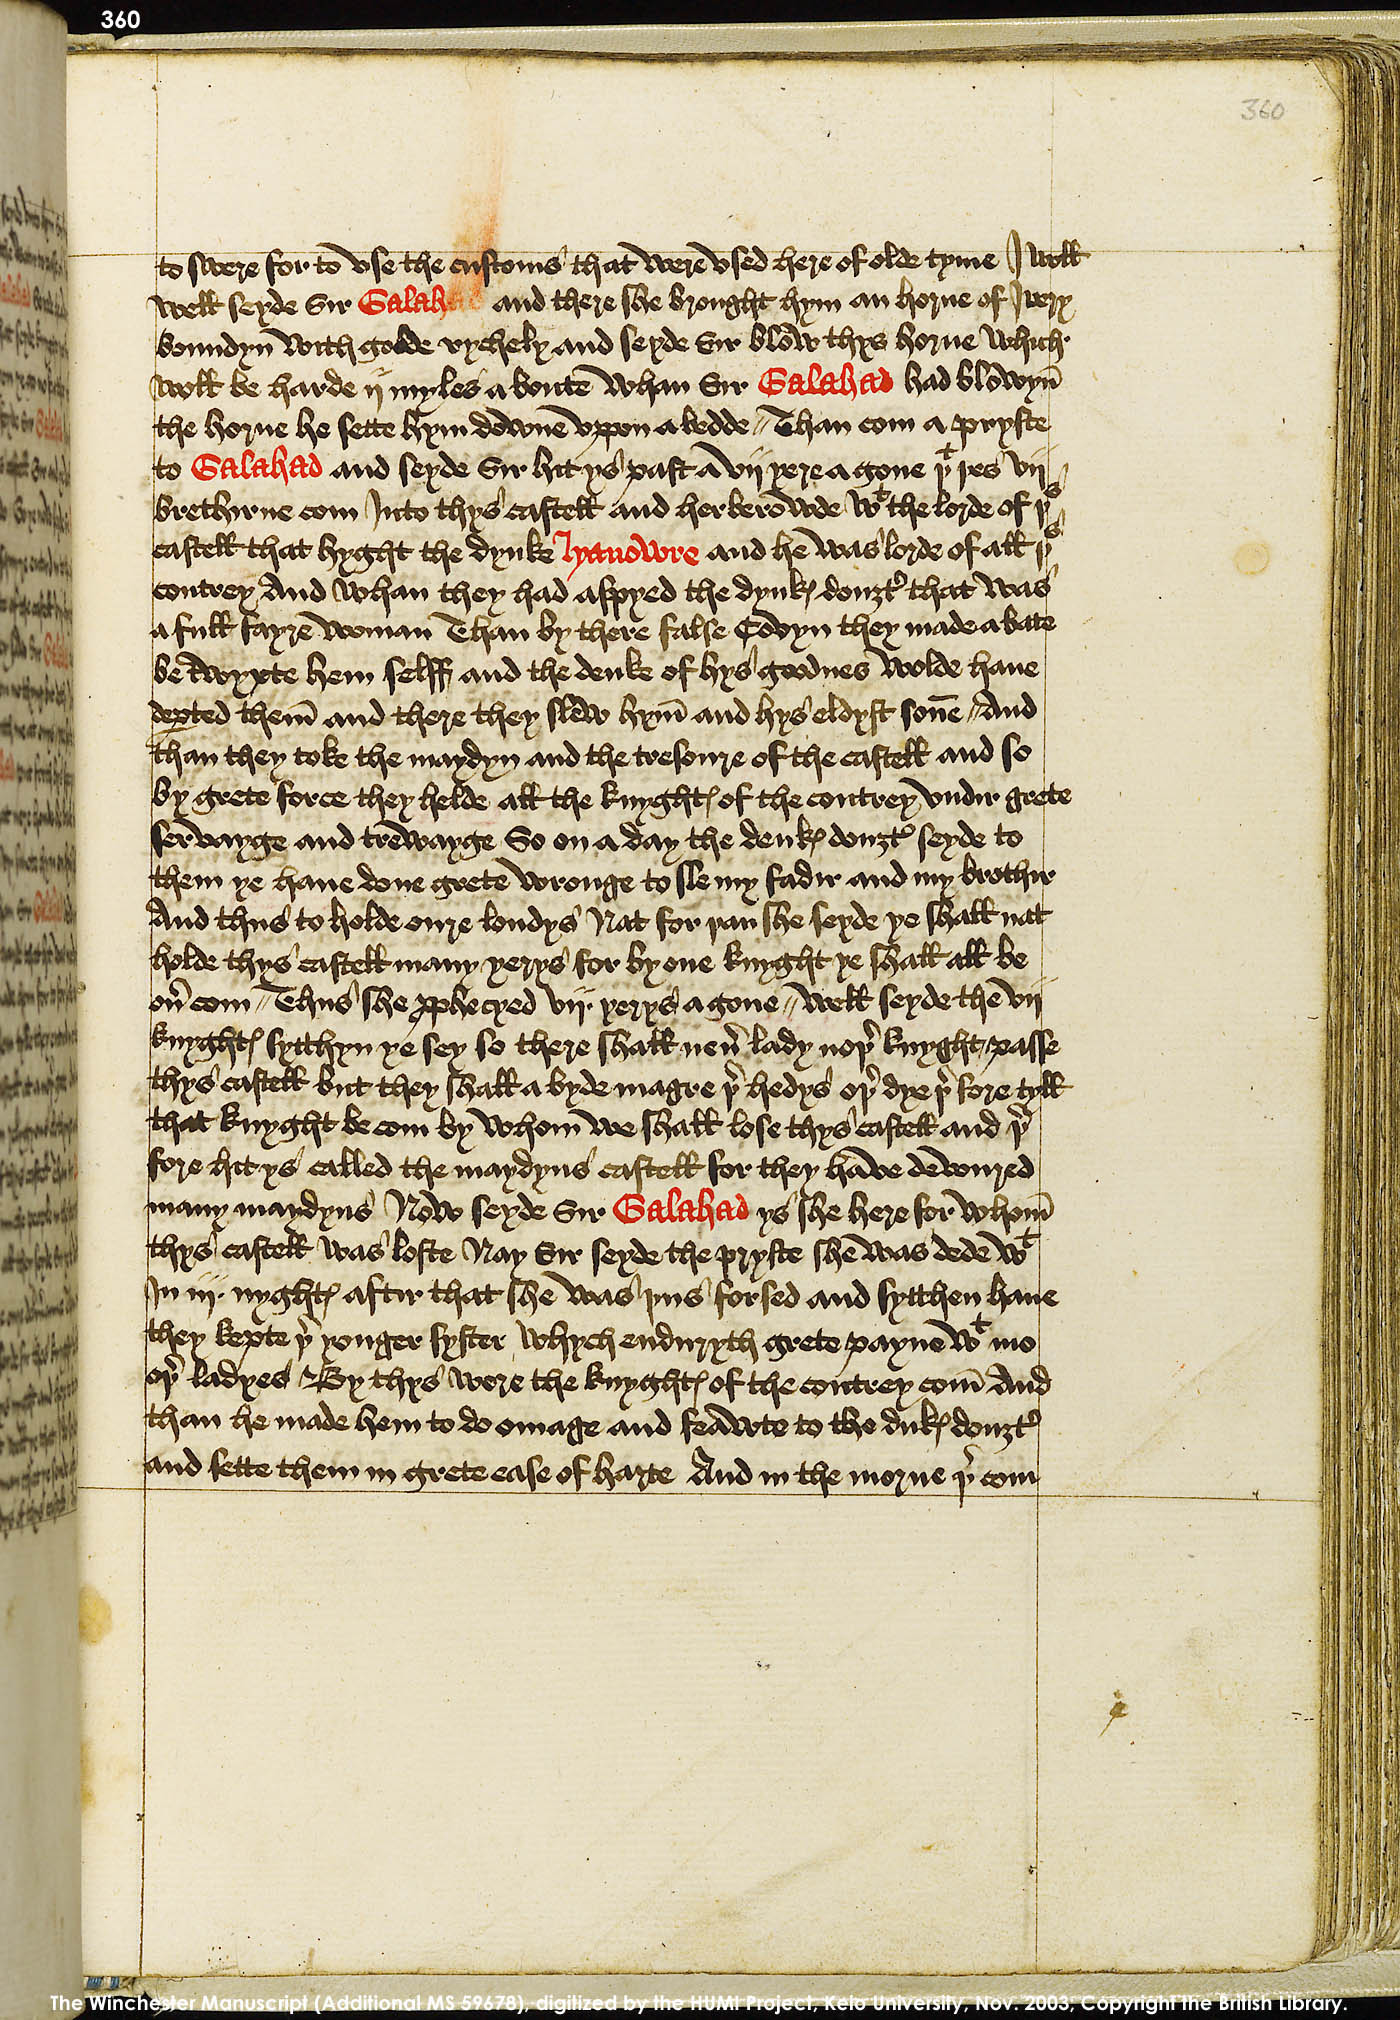 360
360
to swere for to vse the customs that were vsed here of olde tyme I woll
well seyde Sir Galahad and there she brought hym an horne of Ivery
boundyn with golde rychely and seyde Sir blow thys horne which
woll be harde ij myles a boute Whan Sir Galahad had blowyn̄
the horne he sette hym downe vppon a bedde // Than com a pryste
to Galahad and seyde Sir hit ys past a vij yere a gone þᵗ þes vij
brethirne com Into thys castell and herberowde wᵗ the lorde of þˢ
castell that hyght the dynke lyanowre and he was lorde of all þˢ
contrey And whan they had aspyed the dynkꝭ douʒtˀ that was
a full fayre woman Than by there false Covyn they made a bate
be twyxte hem selff and the deuke of hys goodnes wolde haue
deꝑted them̄ and there they slew hym̄ and hys eldyst sone // And
than they toke the maydyn and the tresoure of the castell and so
by grete force they helde all the knyghtꝭ of the contrey vndir grete
servayge and trewayge So on a day the deukꝭ douʒtˀ seyde to
them ye haue done grete wronge to sle my fadir and my brothir
And thus to holde oure londys Nat for þan she seyde ye shall nat
holde thys castell many yerys for by one knyght ye shall all be
oūˀ com // Thus she ꝓphecyed vij. yerys a gone // Well seyde the vij
knyghtꝭ sytthyn ye sey so there shall neuˀ lady noþˀ knyght passe
thys castell but they shall a byde magre þˀ hedys oþˀ dye þˀ fore tyll
that knyght be com by whom we shall lose thys castell and þˀ
fore hit ys called the maydyns castell for they have devoured
many maydyns Now seyde Sir Galahad ys she here for whom̄
thys castell was loste Nay Sir seyde the pryste she was dede wᵗ
In iij. nyghtꝭ aftir that she was þus forsed and sytthen haue
they kepte þˀ yonger syster whych enduryth grete payne wᵗ mo
oþˀ ladyes By thys were the knyghtꝭ of the contrey com̄ And
than he made hem to do omage and feawte to the dukꝭ douʒtˀ
and sette them in grete ease of harte And in the morne þˀ com
The Winchester Manuscript (Additional MS 59678), digitized by the HUMI Project, Keio University, Nov. 2003; Copyright the British Library.